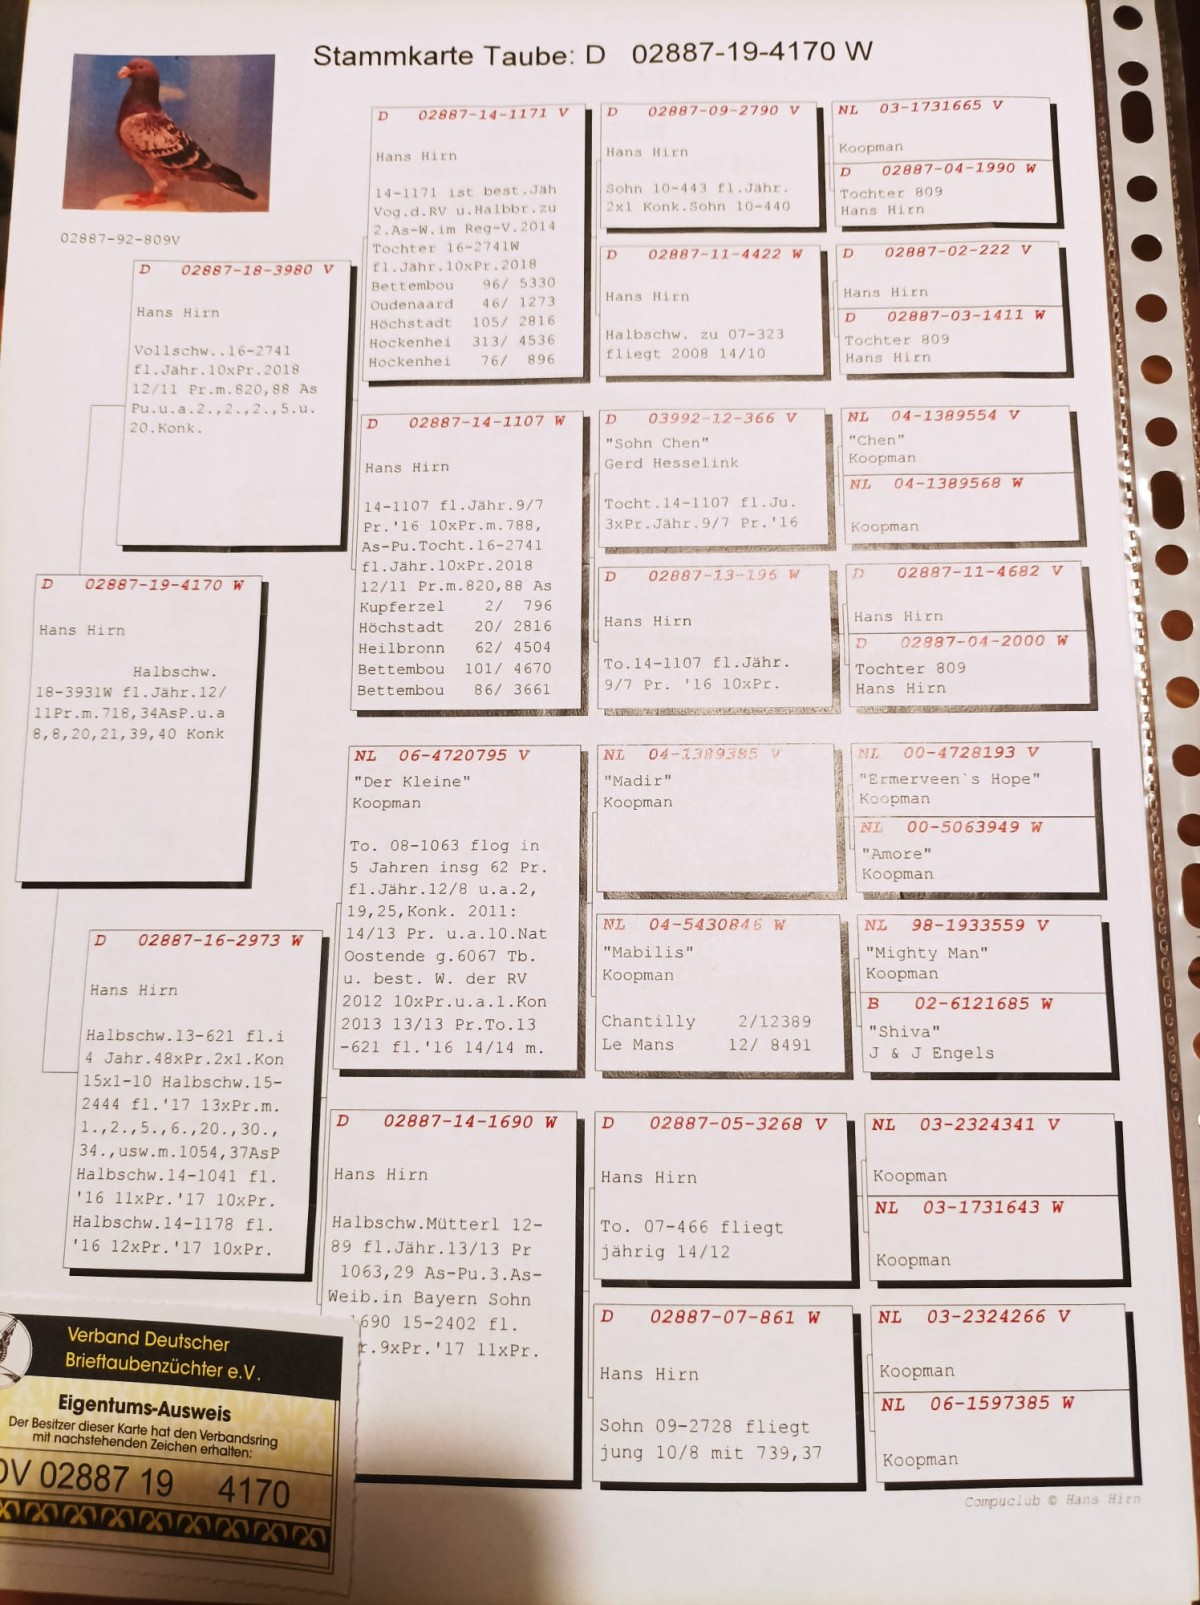 Stammkarte Taube: D 02887-19-4170 W
02887-92-809V
D 02887-18-3980 V
Hans Hirn
Vollschw..16-2741
fl.Jähr.10xPr.2018
12/11 Pr.m.820,88 As
Pu.u.a.2.,2.,2.,5.u.
20.Konk.
D 02887-19-4170 W
Hans Hirn
Halbschw.
18-3931W fl.Jähr.12/
11Pr.m.718,34AsP.u.a
8,8,20,21,39,40 Konk
D 02887-16-2973 W
Hans Hirn
Halbschw.13-621 fl.i
4 Jahr.48xPr.2x1.Kon
15x1-10 Halbschw.15-
2444 fl.'17 13xPr.m.
1.,2.,5.,6.,20.,30.,
34.,usw.m.1054,37AsP
Halbschw.14-1041 fl.
'16 11xPr.'17 10xPr.
Halbschw.14-1178 fl.
'16 12xPr.'17 10xPr.
D 02887-14-1171 V
Hans Hirn
14-1171 ist best.Jäh
Vog.d.RV u.Halbbr.zu
2.As-W.im Reg-V.2014
Tochter 16-2741W
fl.Jähr.10xPr.2018
Bettembou 96/ 5330
Oudenaard 46/ 1273
Höchstadt 105/ 2816
Hockenhei 313/ 4536
Hockenhei 76/ 896
D 02887-14-1107 W
Hans Hirn
14-1107 fl.Jähr.9/7
Pr.'16 10xPr.m.788,
As-Pu.Tocht.16-2741
fl.Jähr.10xPr.2018
12/11 Pr.m.820,88 As
Kupferzel 2/ 796
Höchstadt 20/ 2816
Heilbronn 62/ 4504
Bettembou 101/ 4670
Bettembou 86/ 3661
NL 06-4720795 V
"Der Kleine"
Koopman
To. 08-1063 flog in
5 Jahren insg 62 Pr.
fl.Jähr.12/8 u.a.2,
19,25,Konk. 2011:
14/13 Pr. u.a.10.Nat
Oostende g.6067 Tb.
u. best. W. der RV
2012 10xPr.u.a.1.Kon
2013 13/13 Pr.To.13
-621 fl.'16 14/14 m.
D 02887-14-1690 W
Hans Hirn
Halbschw.Mütterl 12-
89 fl.Jähr.13/13 Pr
1063,29 As-Pu.3.As-
Weib.in Bayern Sohn
1690 15-2402 fl.
r.9xPr.'17 11xPr.
D 02887-09-2790 V
Hans Hirn
Sohn 10-443 fl.Jähr.
2x1 Konk.Sohn 10-440
D 02887-11-4422 W
Hans Hirn
Halbschw. zu 07-323
fliegt 2008 14/10
D 03992-12-366 V
"Sohn Chen"
Gerd Hesselink
Tocht.14-1107 fl.Ju.
3xPr.Jähr.9/7 Pr.'16
D 02887-13-196 W
Hans Hirn
To.14-1107 fl.Jähr.
9/7 Pr. '16 10xPr.
NL 04-1389385 V
"Madir"
Koopman
NL 04-5430846 W
"Mabilis"
Koopman
Chantilly 2/12389
Le Mans 12/ 8491
D 02887-05-3268 V
Hans Hirn
To. 07-466 fliegt
jährig 14/12
D 02887-07-861 W
Hans Hirn
Sohn 09-2728 fliegt
jung 10/8 mit 739,37
NL 03-1731665 V
Koopman
D 02887-04-1990 W
Tochter 809
Hans Hirn
D 02887-02-222 V
Hans Hirn
D 02887-03-1411 W
Tochter 809
Hans Hirn
NL 04-1389554 V
"Chen"
Koopman
NL 04-1389568 W
Koopman
D 02887-11-4682 V
Hans Hirn
D 02887-04-2000 W
Tochter 809
Hans Hirn
NL 00-4728193 V
"Ermerveen`s Hope"
Koopman
NL 00-5063949 W
"Amore"
Koopman
NL 98-1933559 V
"Mighty Man"
Koopman
B 02-6121685 W
"Shiva"
J & J Engels
NL 03-2324341 V
Koopman
NL 03-1731643 W
Koopman
NL 03-2324266 V
Koopman
NL 06-1597385 W
Koopman
Compuclub © Hans Hirn
Verband Deutscher
Brieftaubenzüchter e.V.
Eigentums-Ausweis
Der Besitzer dieser Karte hat den Verbandsring
mit nachstehenden Zeichen erhalten:
DV 02887 19 4170